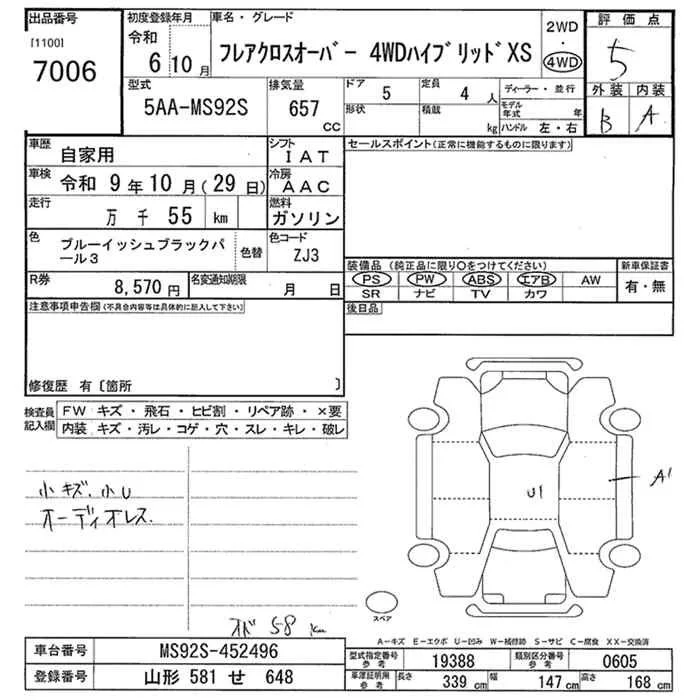 出品番号 初度登録年月 車名・グレード 2WD・4WD 評価点
[1100] 令和
7006 6 10月 フレアクロスオーバー 4WDハイブリッドXS 5
型式 排気量 ドア 5 定員 4人 ディーラー・並行 外装 内装
5AA-MS92S 657 cc 形状 積載 kg モデル年式 年 B A
ハンドル 左・右
車歴 自家用 シフト IAT セールスポイント(正常に機能するものに限ります)
車検 令和 9年10月(29日) 冷房 AAC
走行 万 千 55 km 燃料 ガソリン
色 ブルーイッシュブラックパール3 色替 色コード ZJ3
装備品 (純正品に限り○をつけてください) 新車保証書
R券 8,570円 名変通知期限 月 日 PS PW ABS エアB AW 有・無
SR ナビ TV カワ
注意事項申告欄(不具合内容等は具体的に記入して下さい) 後日品
修復歴 有〔箇所 〕
検査員記入欄 FW キズ・飛石・ヒビ割・リペア跡・×要
内装 キズ・汚レ・コゲ・穴・スレ・キレ・破レ
小キズ.小U
オーディオレス.
U1
A1
スペア
オド 58 km
A−キズ E−エクボ U−凹み W−補修跡 S−サビ C−腐食 XX−交換済
車台番号 MS92S-452496
型式指定番号 参考 19388 類別区分番号 参考 0605
登録番号 山形 581 せ 648
車庫証明用 参考 長さ 339 cm 幅 147 cm 高さ 168 cm